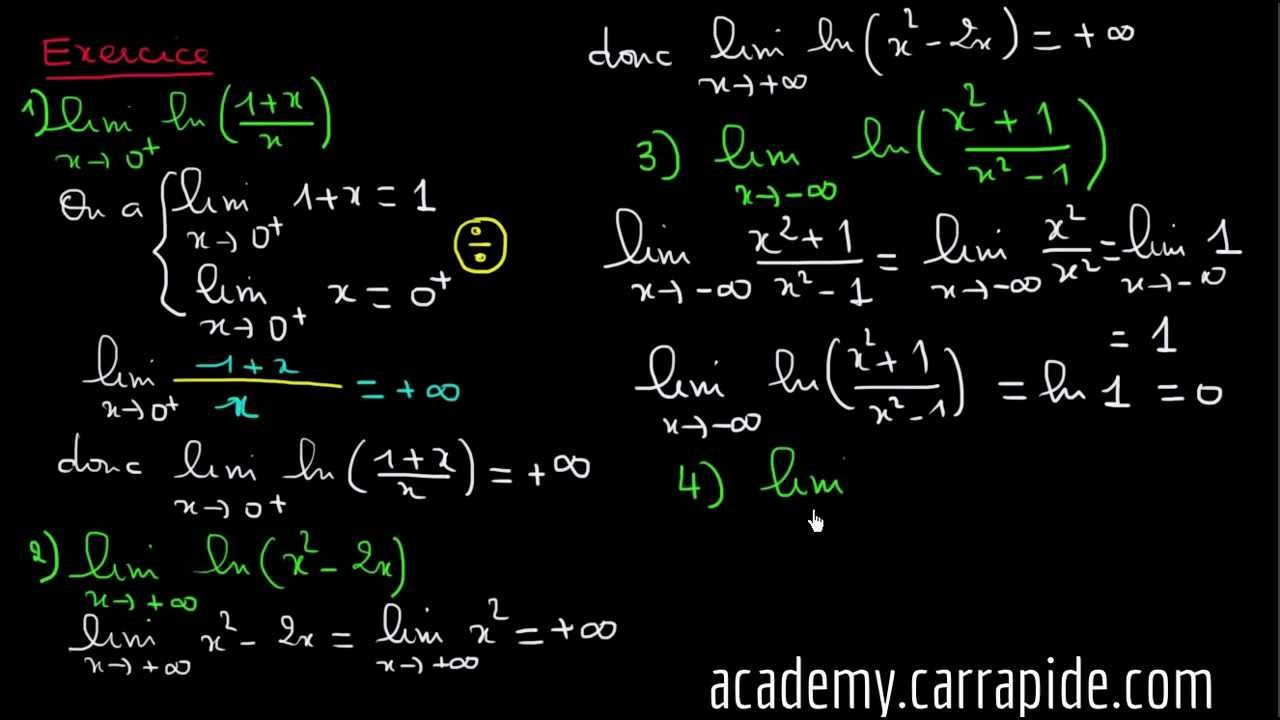 Exercice
1) lim x→0⁺ ln((1+x)/x)
On a { lim x→0⁺ 1+x = 1
lim x→0⁺ x = 0⁺
÷
lim x→0⁺ (1+x)/x = +∞
donc lim x→0⁺ ln((1+x)/x) = +∞
2) lim x→+∞ ln(x²-2x)
lim x→+∞ x²-2x = lim x→+∞ x² = +∞
donc lim x→+∞ ln(x²-2x) = +∞
3) lim x→-∞ ln((x²+1)/(x²-1))
lim x→-∞ (x²+1)/(x²-1) = lim x→-∞ x²/x² = lim x→-∞ 1
= 1
lim x→-∞ ln((x²+1)/(x²-1)) = ln 1 = 0
4) lim
academy.carrapide.com